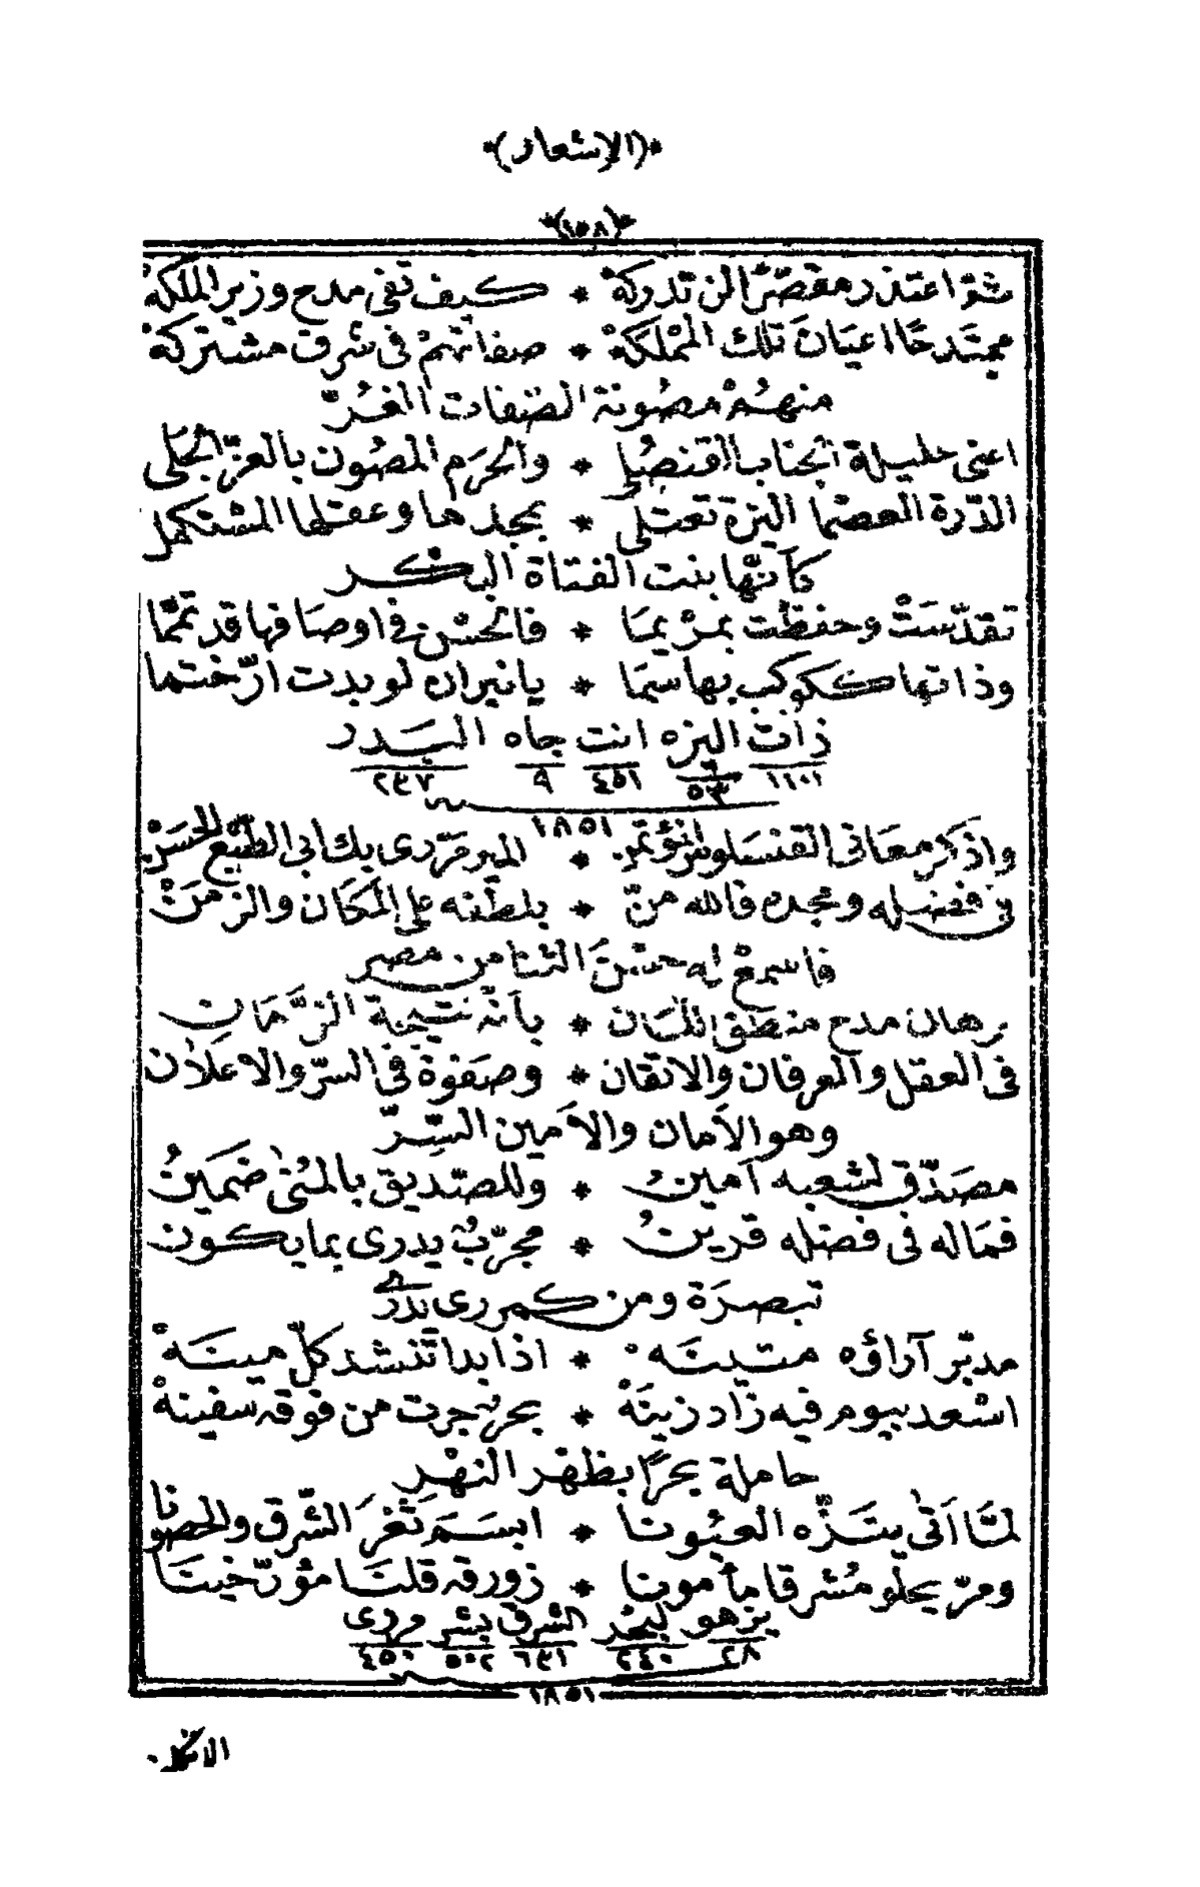 *(الاشعار)*
*(١٥٨)*
ثمّ اعتذر مقصّرًا لن تدركهْ * كيف تفى مدح وزير المملكهْ
ممتدحًا اعيَانَ تلك المَمْلكَهْ * صفاتهمْ فى شرق مشتركهْ
منهُمْ مصُونة الصّفات الغُرّ
اعنى حليلة الجناب القنصُلِى * والحرَم المصُون بالعزّ الجَلى
الدّرة العصْما البزة تعتلى * بمجدها وعقلها المستكمل
كأنّها بنت الفتاة البكر
تقدّسَتْ وحفظت بمرْيمَا * فالحسْن فى اوصَافها قد تمّمَا
وذاتها ككوكب بها سَمَا * يا نيراه لو بدت ارّختما
ذات البزه انت جاه البَدر
١١٠١ ٥٣ ٤٥١ ٩ ٢٣٧
١٨٥١
واذكر معَانى القنسلوس المؤتمن * المير مرّدى بك ابى الطبْع الحسَنْ
فى فضله ومجده فالله منّ * بلطفه على المكَان والزمَنْ
فاسمعْ له حسْنَ الثنا من مصر
برهان مدح منطق اللسَان * بأنّه نتيجة الزّمَانِ
فى العقل والعرفان والاتقان * وصفوة فى السرّ والاعلان
وهو الأمان والأمين السِّرّ
مصَدّق لشعبه أمينُ * وللصّديق بالمُنى ضَمينُ
فمَاله فى فضله قرينُ * مجرّبٌ يدرى بما يكون
تبصرَة ومن كمردى يَدْرى
مدبّر آراؤه متينَهْ * اذا بدا تنشد كلّ مينَهْ
اسْعد بيوم فيه زَاد زينَهْ * بحرٌ جرت من فوقه سفينهْ
حاملة بحرًا بظهْر النهْرِ
لمّا اَتى يَنَزّه العيُونا * ابسَمَ ثغرَ الشّرق والحصونا
ومرّ يحلو مُشرقا مأمونا * زورقه قلتَا مؤرّخينَا
يزهو لبحْر الشرق بشر مردى
٢٨ ٢٤٠ ٦٣١ ٥٠٢ ٤٥٠
١٨٥١